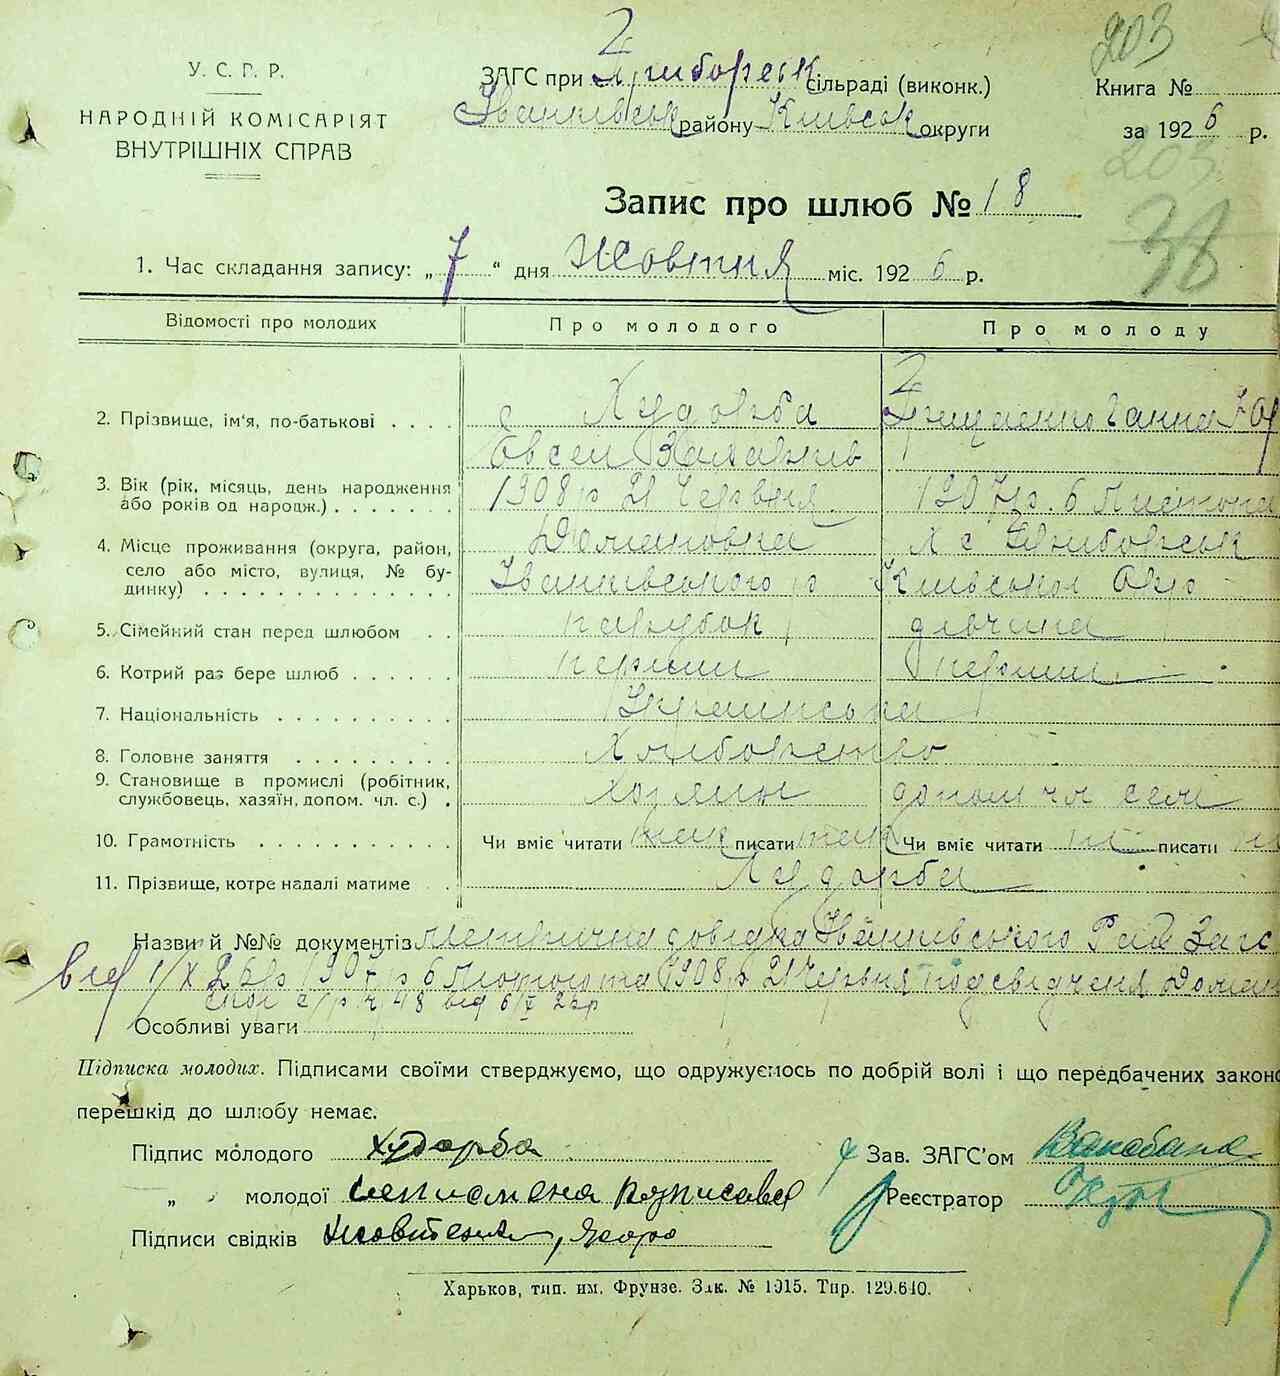 203
У. С. Р. Р.
НАРОДНІЙ КОМІСАРІЯТ
ВНУТРІШНІХ СПРАВ
ЗАГС при Приборськ сільраді (виконк.)
Іванківськ району Київськ округи
Книга №
за 1926 р.
203
38
Запис про шлюб № 18
1. Час складання запису: „7“ дня Жовтня міс. 1926 р.
Відомості про молодих
Про молодого
Про молоду
2. Прізвище, ім'я, по-батькові . . .
Худорба
Овсей
Грищенко Ганна
3. Вік (рік, місяць, день народження
або років од народж.) . . . . . . .
1908 р 21 Червня
1907 р. 6 Лютого
4. Місце проживання (округа, район,
село або місто, вулиця, № бу-
динку) . . . . . . . . . . . . . .
Домановка
Іванківського р
с Приборськ
Київської Окр
5. Сімейний стан перед шлюбом . .
парубок
дівчина
6. Котрий раз бере шлюб . . . . . .
перший
перший
7. Національність . . . . . . . . . .
Українська
8. Головне заняття . . . . . . . . .
Хліборобство
9. Становище в промислі (робітник,
службовець, хазяїн, допом. чл. с.) .
хозяин
допом чл семі
10. Грамотність . . . . . . . . . . .
Чи вміє читати так писати так
Чи вміє читати ні писати ні
11. Прізвище, котре надалі матиме .
Худорба
Назви й №№ документів метрична довідка Іванківського Рай Загс
від 1/X 26 р 1907 р 6 Лютого та 1908 р 21 Червня посвідчення Доман
с/р ч 48 від 6/X 26 р
Особливі уваги
Підписка молодих. Підписами своїми стверджуємо, що одружуємось по добрій волі і що передбачених законо
перешкід до шлюбу немає.
Підпис молодого Худорба
„ молодої неписмена розписався
Підписи свідків
Зав. ЗАГС'ом
Реєстратор
Харьков, тип. им. Фрунзе. Зак. № 1915. Тир. 129.640.